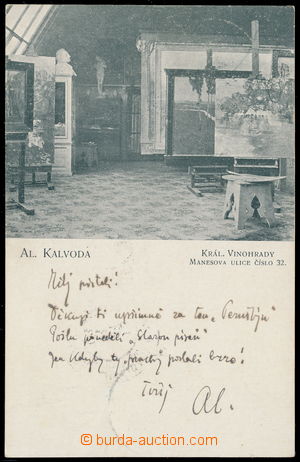 AL. KALVODA
KRÁL. VINOHRADY
MANESOVA ULICE ČÍSLO 32.
Milý příteli!
Děkuji ti upřímně za ten „Pernštýn"
Pošlu pondělí „Starou píseň"
Jen kdyby ty prachy poslali brzo!
Tvůj
Al.
burda-auction.com